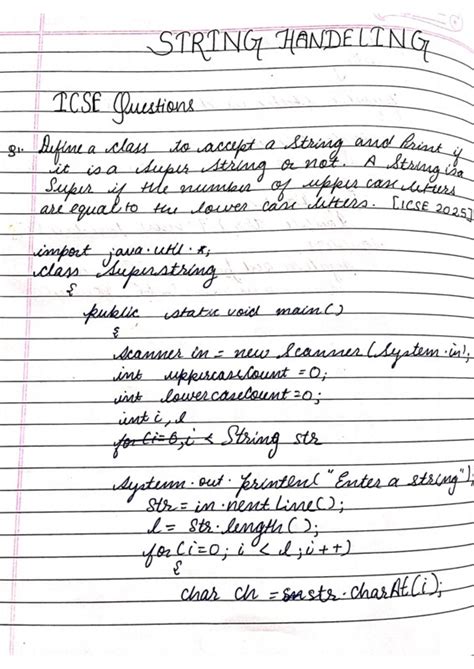 STRING HANDELING
ICSE Questions
Define a class to accept a String and Print if
it is a super string or not. A String is a
Super if the number of upper case letters
are equal to the lower case letters. [ICSE 2025]
import java.util.*;
class Superstring
{
public static void main()
{
Scanner in = new Scanner (System.in);
int uppercaseCount = 0;
int lowercaseCount = 0;
int i, l
for (i=0, i < String str
System.out.println("Enter a string");
Str = in.nextLine();
l = Str.length();
for (i=0; i < l; i++)
{
char ch = str.charAt(i);